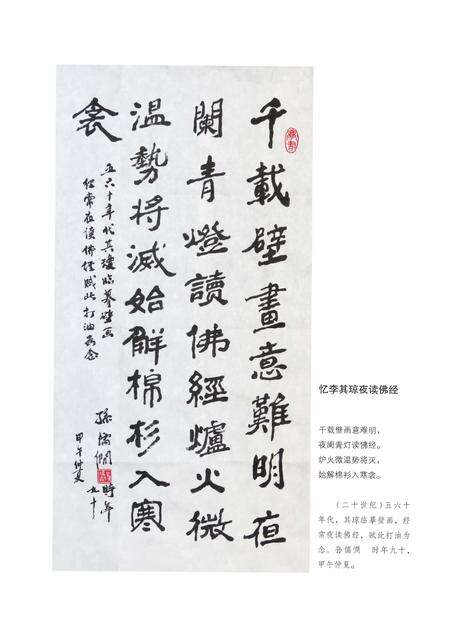 千載壁畫意難明夜
闌青燈讀佛經爐火微
溫勢將滅始觧棉衫入寒
衾
五六十年代其瓊臨摹壁画
经常夜读佛经賦此打油为念
孫儒僩
时年
九十
甲午仲夏
忆李其琼夜读佛经
千载壁画意难明,
夜阑青灯读佛经。
炉火微温势将灭,
始解棉衫入寒衾。
(二十世纪)五六十
年代,其琼临摹壁画,经
常夜读佛经,赋此打油为
念。孙儒僩 时年九十,
甲午仲夏。